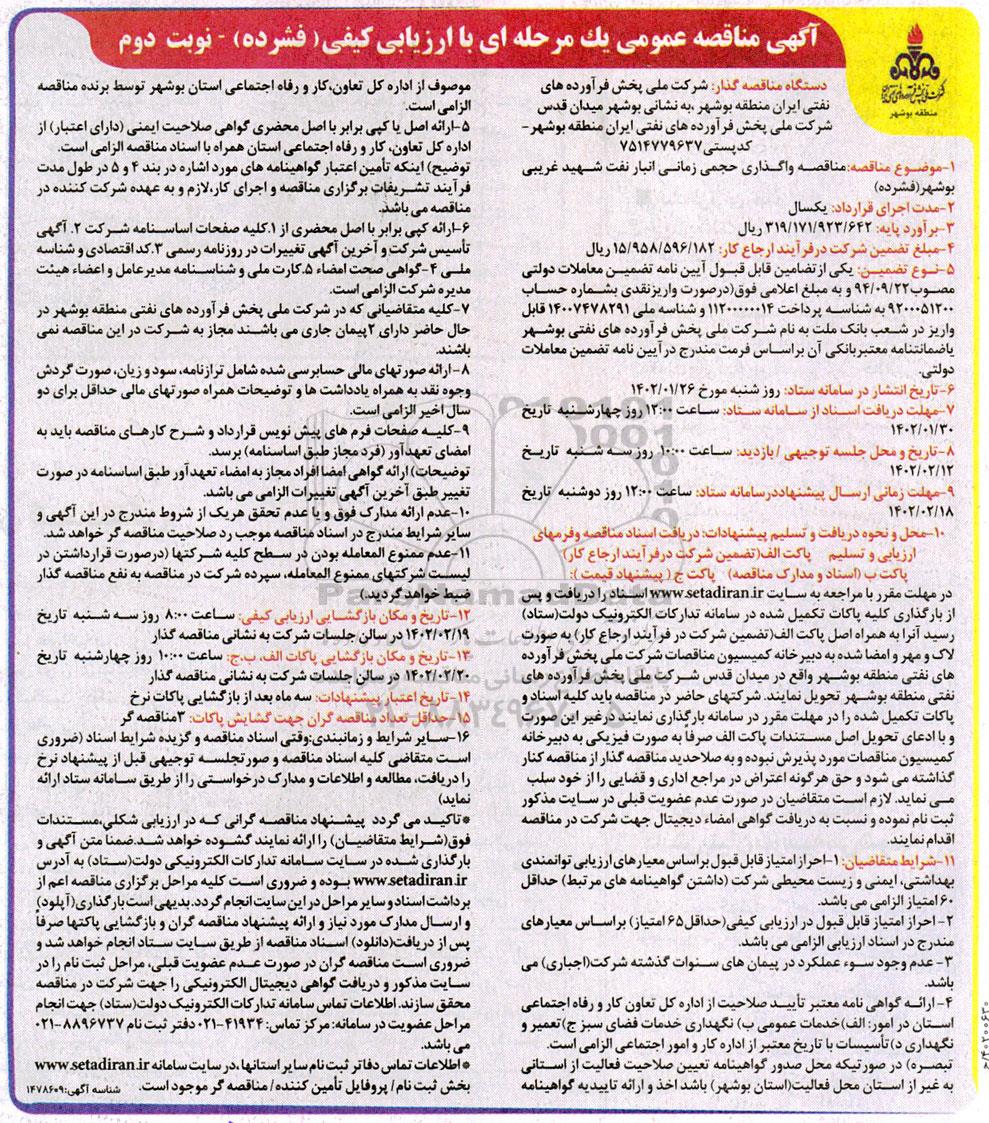 آگهی مناقصه عمومی یك مرحله ای با ارزیابی کیفی( فشرده) - نوبت دوم
منطقه بوشهر
دستگاه مناقصه گذار: شرکت ملی پخش فرآورده های
نفتی ایران منطقه بوشهر ،به نشانی بوشهر میدان قدس
شرکت ملی پخش فرآورده های نفتی ایران منطقه بوشهر-
کدپستی۷۵۱۴۷۷۹۶۳۷
۱-موضوع مناقصه:مناقصه واگذاری حجمی زمانی انبار نفت شهید غریبی
بوشهر(فشرده)
۲-مدت اجرای قرارداد: یکسال
۳-برآورد پایه: ۳۱۹/۱۷۱/۹۲۳/۶۴۲ ریال
۴-مبلغ تضمین شرکت درفرآیند ارجاع کار: ۱۵/۹۵۸/۵۹۶/۱۸۲ ریال
۵-نوع تضمین: یکی از تضامین قابل قبول آیین نامه تضمین معاملات دولتی
مصوب۹۴/۰۹/۲۲ و به مبلغ اعلامی فوق(درصورت واریزنقدی بشماره حساب
۹۲۰۰۰۵۱۲۰۰ به شناسه پرداخت ۱۱۲۰۰۰۰۰۰۱۴ و شناسه ملی ۱۴۰۰۷۴۷۸۲۹۱ قابل
واریز در شعب بانک ملت به نام شرکت ملی پخش فرآورده های نفتی بوشهر
یاضمانتنامه معتبربانکی آن براساس فرمت مندرج درآیین نامه تضمین معاملات
دولتی.
۶-تاریخ انتشار در سامانه ستاد: روز شنبه مورخ ۱۴۰۲/۰۱/۲۶
۷-مهلت دریافت اسناد از سامانه ستاد: ساعت ۱۲:۰۰ روز چهارشنبه تاریخ
۱۴۰۲/۰۱/۳۰
۸-تاریخ و محل جلسه توجیهی / بازدید: ساعت ۱۰:۰۰ روز سه شنبه تاریخ
۱۴۰۲/۰۲/۱۲
۹-مهلت زمانی ارسال پیشنهاددرسامانه ستاد: ساعت ۱۲:۰۰ روز دوشنبه تاریخ
۱۴۰۲/۰۲/۱۸
۱۰-محل و نحوه دریافت و تسلیم پیشنهادات: دریافت اسناد مناقصه وفرمهای
ارزیابی و تسلیم پاکت الف(تضمین شرکت درفرآیند ارجاع کار)
پاکت ب (اسناد و مدارک مناقصه) پاکت ج ( پیشنهاد قیمت ):
در مهلت مقرر با مراجعه به سایت www.setadiran.ir اسناد را دریافت و پس
از بارگذاری کلیه پاکات تکمیل شده در سامانه تدارکات الکترونیک دولت(ستاد)
رسید آنرا به همراه اصل پاکت الف(تضمین شرکت در فرآیند ارجاع کار) به صورت
لاک و مهر و امضا شده به دبیرخانه کمیسیون مناقصات شرکت ملی پخش فرآورده
های نفتی منطقه بوشهر واقع در میدان قدس شرکت ملی پخش فرآورده های
نفتی منطقه بوشهر تحویل نمایند. شرکتهای حاضر در مناقصه باید کلیه اسناد و
پاکات تکمیل شده را در مهلت مقرر در سامانه بارگذاری نمایند درغیر این صورت
و با ادعای تحویل اصل مستندات پاکت الف صرفا به صورت فیزیکی به دبیرخانه
کمیسیون مناقصات مورد پذیرش نبوده و به صلاحدید مناقصه گذار از مناقصه کنار
گذاشته می شود و حق هرگونه اعتراض در مراجع اداری و قضایی را از خود سلب
می نماید. لازم است متقاضیان در صورت عدم عضویت قبلی در سایت مذکور
ثبت نام نموده و نسبت به دریافت گواهی امضاء دیجیتال جهت شرکت در مناقصه
اقدام نمایند.
۱۱-شرایط متقاضیان: ۱-احراز امتیاز قابل قبول براساس معیارهای ارزیابی توانمندی
بهداشتی، ایمنی و زیست محیطی شرکت (داشتن گواهینامه های مرتبط) حداقل
۶۰ امتیاز الزامی می باشد.
۲- احراز امتیاز قابل قبول در ارزیابی کیفی(حداقل۶۵ امتیاز) براساس معیارهای
مندرج در اسناد ارزیابی الزامی می باشد.
۳- عدم وجود سوء عملکرد در پیمان های سنوات گذشته شرکت(اجباری) می
باشد.
۴- ارائه گواهی نامه معتبر تأیید صلاحیت از اداره کل تعاون کار و رفاه اجتماعی
استان در امور: الف)خدمات عمومی ب) نگهداری خدمات فضای سبز ج)تعمیر و
نگهداری د)تأسیسات با تاریخ معتبر از اداره کار و امور اجتماعی الزامی است.
تبصره) در صورتیکه محل صدور گواهینامه تعیین صلاحیت فعالیت از استانی
به غیر از استان محل فعالیت(استان بوشهر) باشد اخذ و ارائه تاییدیه گواهینامه
موصوف از اداره کل تعاون،کار و رفاه اجتماعی استان بوشهر توسط برنده مناقصه
الزامی است.
۵-ارائه اصل یا کپی برابر با اصل محضری گواهی صلاحیت ایمنی (دارای اعتبار) از
اداره کل تعاون، کار و رفاه اجتماعی استان همراه با اسناد مناقصه الزامی است.
توضیح) اینکه تأمین اعتبار گواهینامه های مورد اشاره در بند ۴ و ۵ در طول مدت
فرآیند تشریفات برگزاری مناقصه و اجرای کار،لازم و به عهده شرکت کننده در
مناقصه می باشد.
۶-ارائه کپی برابر با اصل محضری از ۱.کلیه صفحات اساسنامه شرکت ۲. آگهی
تأسیس شرکت و آخرین آگهی تغییرات در روزنامه رسمی ۳.کد اقتصادی و شناسه
ملی ۴-گواهی صحت امضاء ۵.کارت ملی و شناسنامه مدیرعامل و اعضاء هیئت
مدیره شرکت الزامی است.
۷-کلیه متقاضیانی که در شرکت ملی پخش فرآورده های نفتی منطقه بوشهر در
حال حاضر دارای ۲پیمان جاری می باشند مجاز به شرکت در این مناقصه نمی
باشند.
۸-ارائه صورتهای مالی حسابرسی شده شامل ترازنامه، سود و زیان، صورت گردش
وجوه نقد به همراه یادداشت ها و توضیحات همراه صورتهای مالی حداقل برای دو
سال اخیر الزامی است.
۹-کلیه صفحات فرم های پیش نویس قرارداد و شرح کارهای مناقصه باید به
امضای تعهدآور (فرد مجاز طبق اساسنامه) برسد.
توضیحات) ارائه گواهی امضا افراد مجاز به امضاء تعهدآور طبق اساسنامه در صورت
تغییر طبق آخرین آگهی تغییرات الزامی می باشد.
۱۰-عدم ارائه مدارک فوق و یا عدم تحقق هریک از شروط مندرج در این آگهی و
سایر شرایط مندرج در اسناد مناقصه موجب رد صلاحیت مناقصه گر خواهد شد.
۱۱-عدم ممنوع المعامله بودن در سطح کلیه شرکتها (درصورت قرارداشتن در
لیست شرکتهای ممنوع المعامله، سپرده شرکت در مناقصه به نفع مناقصه گذار
ضبط خواهد گردید.)
۱۲-تاریخ و مکان بازگشایی ارزیابی کیفی: ساعت ۸:۰۰ روز سه شنبه تاریخ
۱۴۰۲/۰۲/۱۹ در سالن جلسات شرکت به نشانی مناقصه گذار
۱۳-تاریخ و مکان بازگشایی پاکات الف، ب،ج: ساعت ۱۰:۰۰ روز چهارشنبه تاریخ
۱۴۰۲/۰۲/۲۰ در سالن جلسات شرکت به نشانی مناقصه گذار
۱۴-تاریخ اعتبار پیشنهادات: سه ماه بعد از بازگشایی پاکات نرخ
۱۵-حداقل تعداد مناقصه گران جهت گشایش پاکات: ۳مناقصه گر
۱۶-سایر شرایط و زمانبندی:وقتی اسناد مناقصه و گزیده شرایط اسناد (ضروری
است متقاضی کلیه اسناد مناقصه و صورتجلسه توجیهی قبل از پیشنهاد نرخ
را دریافت، مطالعه و اطلاعات و مدارک درخواستی را از طریق سامانه ستاد ارائه
نماید)
*تاکید می گردد پیشنهاد مناقصه گرانی که در ارزیابی شکلی،مستندات
فوق(شرایط متقاضیان) را ارائه نمایند گشوده خواهد شد.ضمنا متن آگهی و
بارگذاری شده در سایت سامانه تدارکات الکترونیکی دولت(ستاد) به آدرس
www.setadiran.ir بوده و ضروری است کلیه مراحل برگزاری مناقصه اعم از
برداشت اسناد و سایر مراحل در این سایت انجام گردد.بدیهی است بارگذاری(آپلود)
و ارسال مدارک مورد نیاز و ارائه پیشنهاد مناقصه گران و بازگشایی پاکتها صرفاً
پس از دریافت(دانلود) اسناد مناقصه از طریق سایت ستاد انجام خواهد شد و
ضروری است مناقصه گران در صورت عدم عضویت قبلی، مراحل ثبت نام را در
سایت مذکور و دریافت گواهی دیجیتال الکترونیکی را جهت شرکت در مناقصه
محقق سازند.اطلاعات تماس سامانه تدارکات الکترونیک دولت(ستاد) جهت انجام
مراحل عضویت در سامانه: مرکز تماس: ۴۱۹۳۴-۰۲۱ دفتر ثبت نام ۸۸۹۶۷۳۷-۰۲۱
می باشد.
*اطلاعات تماس دفاتر ثبت نام سایر استانها،در سایت سامانه www.setadiran.ir
بخش ثبت نام / پروفایل تأمین کننده/ مناقصه گر موجود است.
شناسه آگهی:۱۴۷۸۶۰۹